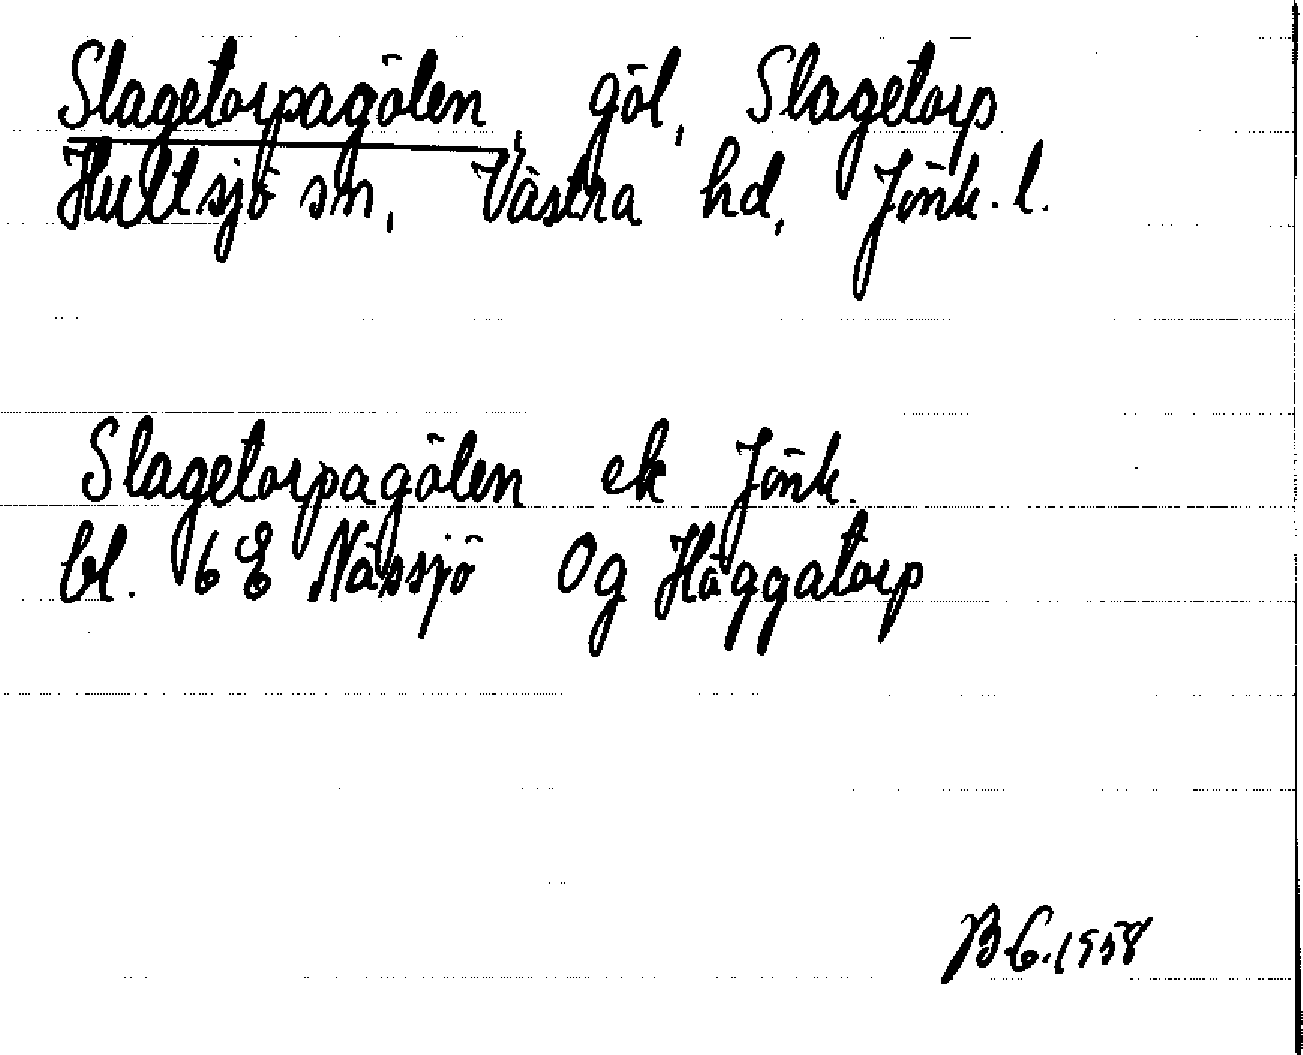 Slagetorpagölen, göl, Slagetorp
Hultsjö sn, Västra hd, Jönk. l.
Slagetorpagölen ek Jönk.
bl. 6E Nässjö Og Häggatorp
B-G. 1958